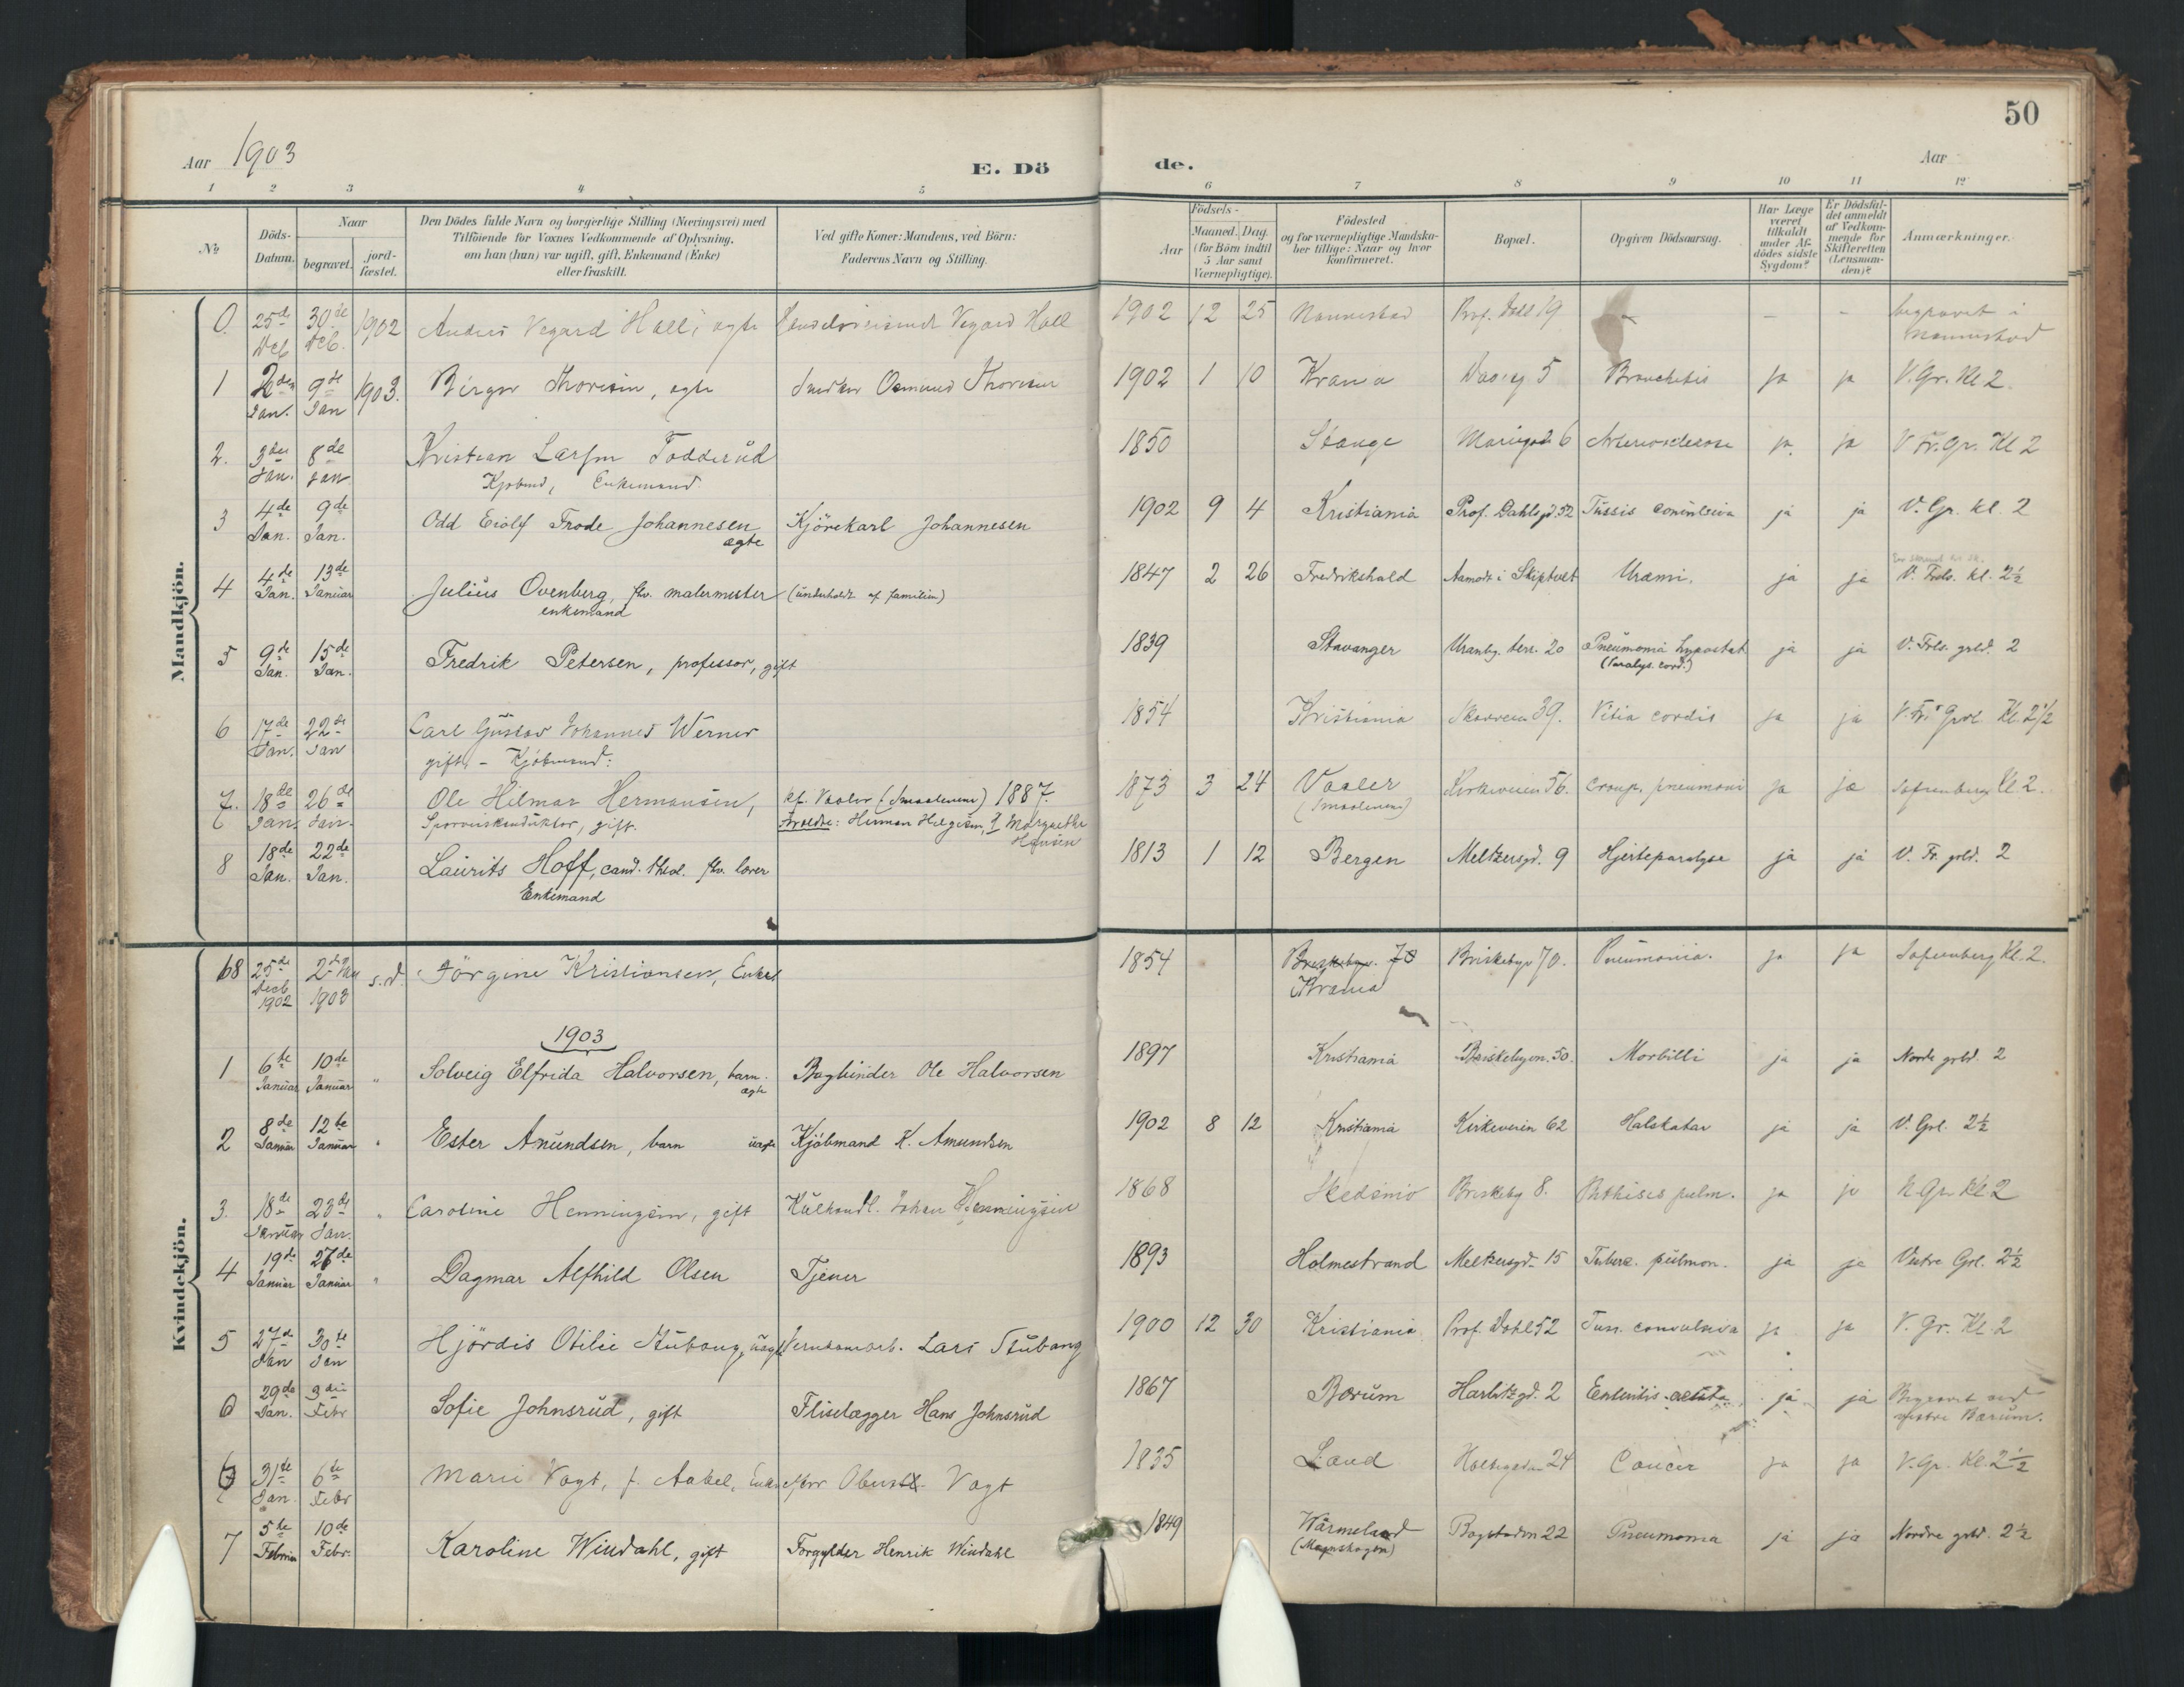 50
Aar 1903
E. Dö de.
Aar
1 2 3 4 5 6 7 8 9 10 11 12
№
Döds-Datum.
Naar
begravet.
jord-fæstet.
Den Dödes fulde Navn og borgerlige Stilling (Næringsvei) med
Tilföiende for Voxnes Vedkommende af Oplysning,
om han (hun) var ugift, gift, Enkemand (Enke)
eller fraskilt.
Ved gifte Koner: Mandens, ved Börn:
Faderens Navn og Stilling.
Födsels-
Aar
Maaned. Dag.
(for Börn indtil
5 Aar samt
Værnepligtige).
Födested
og for værnepligtige Mandska-
ber tillige: Naar og hvor
konfirmeret.
Bopæl.
Opgiven Dödsaarsag.
Har Læge
været
tilkaldt
under Af-
dödes sidste
Sygdom?
Er Dödsfal-
det anmeldt
af Vedkom-
mende for
Skifteretten
(Lensman-
den)?
Anmærkninger.
Mandkjön.
0 25de Dcb 30de Dcb. 1902 Vegard Hall, ægte Vegard Hall 1902 12 25 Nannestad Prof. Dahl 19 - - begravet i Nannestad
1 9de Jan 1903. Birger Thoresen, ægte Snedker Osmund Thoresen 1902 1 10 Krania 5 Bronchitis ja ja V. Gr. Kl 2.
2. 3die Jan. 8de Jan Kristian Larsen Fodderud
Kjøbmd, Enkemand. 1850 Stange 6 ja. ja V. Fr. Gr. Kl 2
3 4de Jan. 9de Jan. Odd Eiolf Frode Johannesen ægte Kjörekarl Johannesen 1902 9 4 Kristiania Prof. Dahlsgd. 52 Tussis ja ja V. Gr. kl. 2
4 4de Jan. 13de Januar Julius Ovenberg, fhv. malermester
enkemand (underholdt af familien) 1847 2 26 Fredrikshald Aamodt i Skiptvet Uræmi. ja ja V. Frels. kl. 2½
5 9de Jan. 15de Jan. Fredrik Petersen, professor, gift 1839 Stavanger Uranbg. terr. 20 Pneumonia hypostat
(Paralys. cord.) ja ja V. Frls. grld. 2
6 17de Jan. 22de Jan Carl Gustav Johannes Werner
gift, - Kjöbmand. 1854 Kristiania 39. Vitia cordis ja ja V. Fr. Grvl Kl. 2½
7. 18de Jan. 26de Jan. Ole Hilmar Hermansen,
Sporveiskonduktör, gift. kf. Vaaler (Smaalenene) 1887.
Forældre: Herman Helgesen, & Margrethe Hansen 1873 3 24 Vaaler
(Smaalenene) Kirkeveien 56. Croup. pneumoni ja ja Sofienberg Kl 2.
8 18de Jan. 22de Jan. Laurits Hoff, cand. theol. fhv. lærer
Enkemand 1813 1 12 Bergen Meltzersgd. 9 Hjerteparalyse ja ja V. Fr. grld. 2
Kvindekjön.
68 25de Decb 1902 2den Jan 1903 s.d. Jörgine Kristiansen, Enke 1854 Briskebyv. 70
Krania Briskebyv 70. Pneumonia. ja ja Sofienberg Kl. 2.
1903
1 6te Januar 10de Januar " Solveig Elfrida Halvorsen, barn. ægte Bogbinder Ole Halvorsen 1897 Kristiania Briskebyvn. 50. Morbilli ja ja Nordr grld. 2
2 8de Januar 12te Januar " Ester Amundsen, barn uægte Kjöbmand K. Amundsen 1902 8 12 Kristiania Kirkeveien 62 Halskatar ja ja V. Grl. 2½
3. 18de Januar 23de Jan. " Caroline Henningsen, gift Kulhandl. Johan Henningsen 1868 Skedsmo Briskeby 8. Phthisis pulm. ja ja N Gr. Kl 2
4 19de Januar 27de Januar " Dagmar Alfhild Olsen Tjener 1893 Holmestrand Meltzersgd. 15 Tuberc. pulmon. ja ja Vestre Grl. 2½
5 27de Jan 30te Jan Hjördis Otilie Stubang, uægte Jernbanearb. Lars Stubang 1900 12 30 Kristiania Prof. Dahl 52 Tuss. convulsiva ja ja V. Gr. Kl. 2
6 29de Jan. 3die Febr Sofie Johnsrud, gift Fliselægger Hans Johnsrud 1867 Bærum Harbitzgd. 2 Enteritis acuta ja ja Begravet ved vestre Bærum.
31te Jan. 6te Febr Marie Vogt, f. Aabel, Enke efter Oberstl. Vogt 1835 Land 24 Cancer ja ja V. Gr. Kl. 2½
7 5te Februar 10de Febr. Karoline Windahl, gift Forgylder Henrik Windahl 1849 Wärmeland
(Mangskogen) Bogstadvn 22 Pneumonia ja ja Nordre grld. 2½